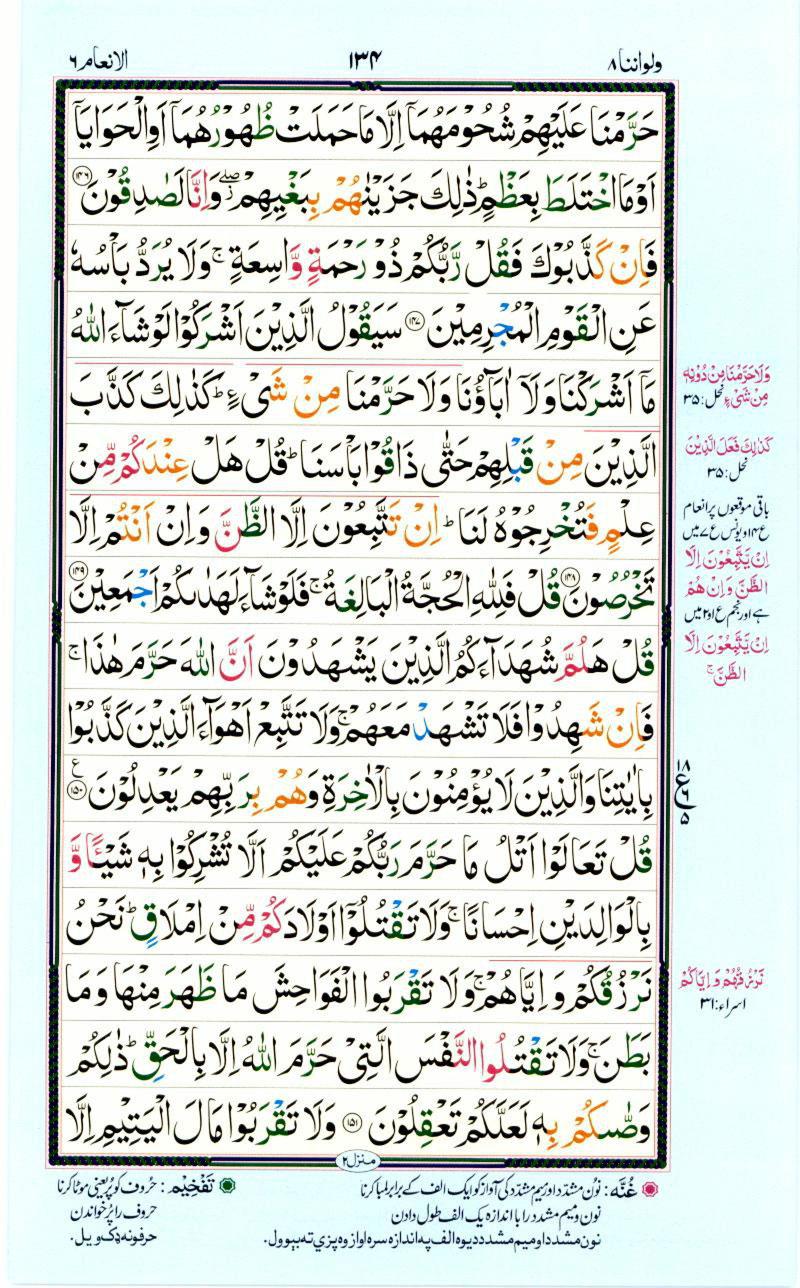 ولواننا ٨
١٣٤
الانعام ٦
حَرَّمْنَا عَلَيْهِمْ شُحُوْمَهُمَاۤ اِلَّا مَا حَمَلَتْ ظُهُوْرُهُمَاۤ اَوِ الْحَوَايَاۤ
اَوْ مَا اخْتَلَطَ بِعَظْمٍ ؕ ذٰلِكَ جَزَيْنٰهُمْ بِبَغْيِهِمْ ۖ٘ وَاِنَّا لَصٰدِقُوْنَ ١٤٦
فَاِنْ كَذَّبُوْكَ فَقُلْ رَّبُّكُمْ ذُوْ رَحْمَةٍ وَّاسِعَةٍ ۚ وَلَا يُرَدُّ بَاْسُهٗ
عَنِ الْقَوْمِ الْمُجْرِمِيْنَ ١٤٧ سَيَقُوْلُ الَّذِيْنَ اَشْرَكُوْا لَوْ شَآءَ اللّٰهُ
مَاۤ اَشْرَكْنَا وَلَاۤ اٰبَآؤُنَا وَلَا حَرَّمْنَا مِنْ شَیْءٍ ؕ كَذٰلِكَ كَذَّبَ
الَّذِيْنَ مِنْ قَبْلِهِمْ حَتّٰى ذَاقُوْا بَاْسَنَا ؕ قُلْ هَلْ عِنْدَكُمْ مِّنْ
عِلْمٍ فَتُخْرِجُوْهُ لَنَا ؕ اِنْ تَتَّبِعُوْنَ اِلَّا الظَّنَّ وَاِنْ اَنْتُمْ اِلَّا
تَخْرُصُوْنَ ١٤٨ قُلْ فَلِلّٰهِ الْحُجَّةُ الْبَالِغَةُ ۚ فَلَوْ شَآءَ لَهَدٰىكُمْ اَجْمَعِيْنَ ١٤٩
قُلْ هَلُمَّ شُهَدَآءَكُمُ الَّذِيْنَ يَشْهَدُوْنَ اَنَّ اللّٰهَ حَرَّمَ هٰذَا ۚ
فَاِنْ شَهِدُوْا فَلَا تَشْهَدْ مَعَهُمْ ۚ وَلَا تَتَّبِعْ اَهْوَآءَ الَّذِيْنَ كَذَّبُوْا
بِاٰيٰتِنَا وَالَّذِيْنَ لَا يُؤْمِنُوْنَ بِالْاٰخِرَةِ وَهُمْ بِرَبِّهِمْ يَعْدِلُوْنَ ١٥٠ ع
قُلْ تَعَالَوْا اَتْلُ مَا حَرَّمَ رَبُّكُمْ عَلَيْكُمْ اَلَّا تُشْرِكُوْا بِهٖ شَيْـًٔا وَّ
بِالْوَالِدَيْنِ اِحْسَانًا ۚ وَلَا تَقْتُلُوْۤا اَوْلَادَكُمْ مِّنْ اِمْلَاقٍ ؕ نَحْنُ
نَرْزُقُكُمْ وَاِيَّاهُمْ ۚ وَلَا تَقْرَبُوا الْفَوَاحِشَ مَا ظَهَرَ مِنْهَا وَمَا
بَطَنَ ۚ وَلَا تَقْتُلُوا النَّفْسَ الَّتِيْ حَرَّمَ اللّٰهُ اِلَّا بِالْحَقِّ ؕ ذٰلِكُمْ
وَصّٰىكُمْ بِهٖ لَعَلَّكُمْ تَعْقِلُوْنَ ١٥١ وَلَا تَقْرَبُوْا مَالَ الْيَتِيْمِ اِلَّا
منزل ٢
وَلَا حَرَّمْنَا مِنْ دُوْنِهٖ
مِنْ شَیْءٍ نحل: ٣٥
كَذٰلِكَ فَعَلَ الَّذِيْنَ
نحل: ٣٥
باقی موقعوں پر انعام
ع ١٤ و یونس ع ٧ میں
اِنْ يَّتَّبِعُوْنَ اِلَّا
الظَّنَّ وَاِنْ هُمْ
ہے اور نجم ع ١ و ٢ میں
اِنْ يَّتَّبِعُوْنَ اِلَّا
الظَّنَّ ۚ
١٨
ع
٦
٥
نَرْزُقُهُمْ وَاِيَّاكُمْ
اسراء: ٣١
غُنَّه: نون مشدّد اور میم مشدّد کی آواز کو ایک الف کے برابر لمبا کرنا
نون و میم مشدد را با اندازہ یک الف طول دادن
نون مشدد او میم مشدد دیوہ الف پہ اندازہ سرہ اواز وہ پزې تہ بېوول.
تَفْخِيْم: حروف کو پُر یعنی موٹا کرنا
حروف را پُر خواندن
حرفونه ډک ویل.